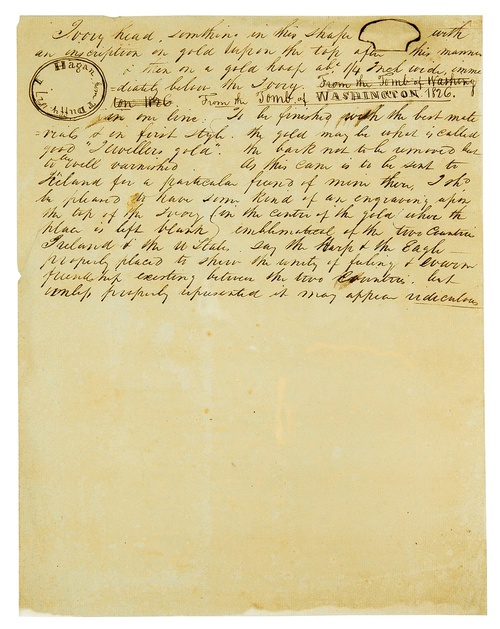 Ivory head, something in this shape with
an inscription on gold upon the top after this manner
J Hagan to T Duffy
& then on a gold hoop abt 1/4 Inch wide, imme
=diately below the Ivory. From the Tomb of Washing
ton 1826. From the Tomb of WASHINGTON 1826.
in one line. To be finished with the best mate
=rials & in first style. The gold may be what is called
good "Jewellers gold". The bark not to be removed but
to be well varnished. As this cane is to be sent to
Ireland for a particular friend of mine there, I shd
be pleased to have some kind of an engraving upon
the top of the Ivory (in the centre of the gold where the
place is left blank) emblematical of the two Countries
Ireland & the U States. Say the Harp & the Eagle
properly placed to shew the unity of feeling & warm
friendship existing between the two Countries. but
unless properly represented it may appear ridiculous